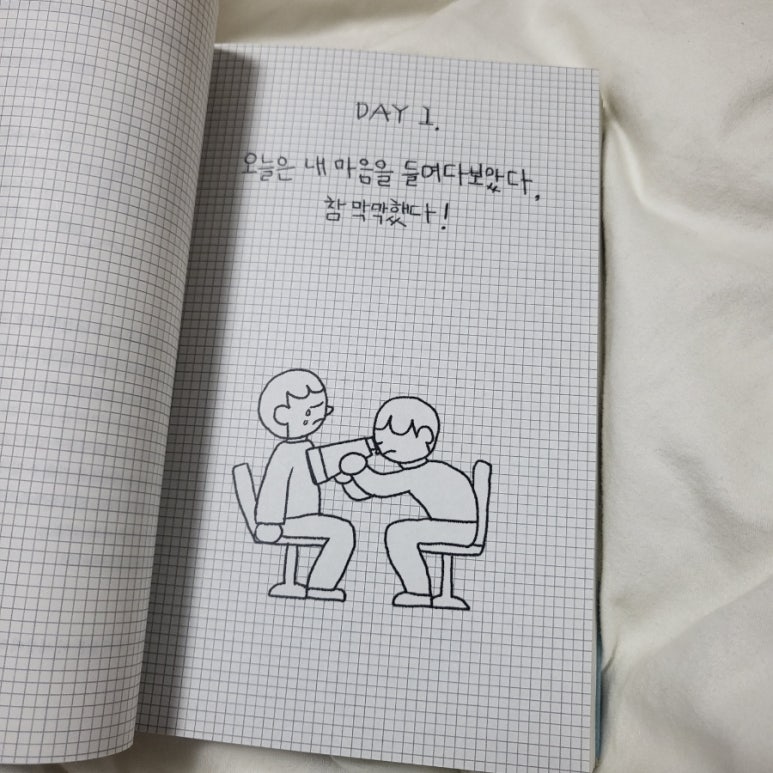 DAY 1.
오늘은 내 마음을 들여다보았다.
참 막막했다!